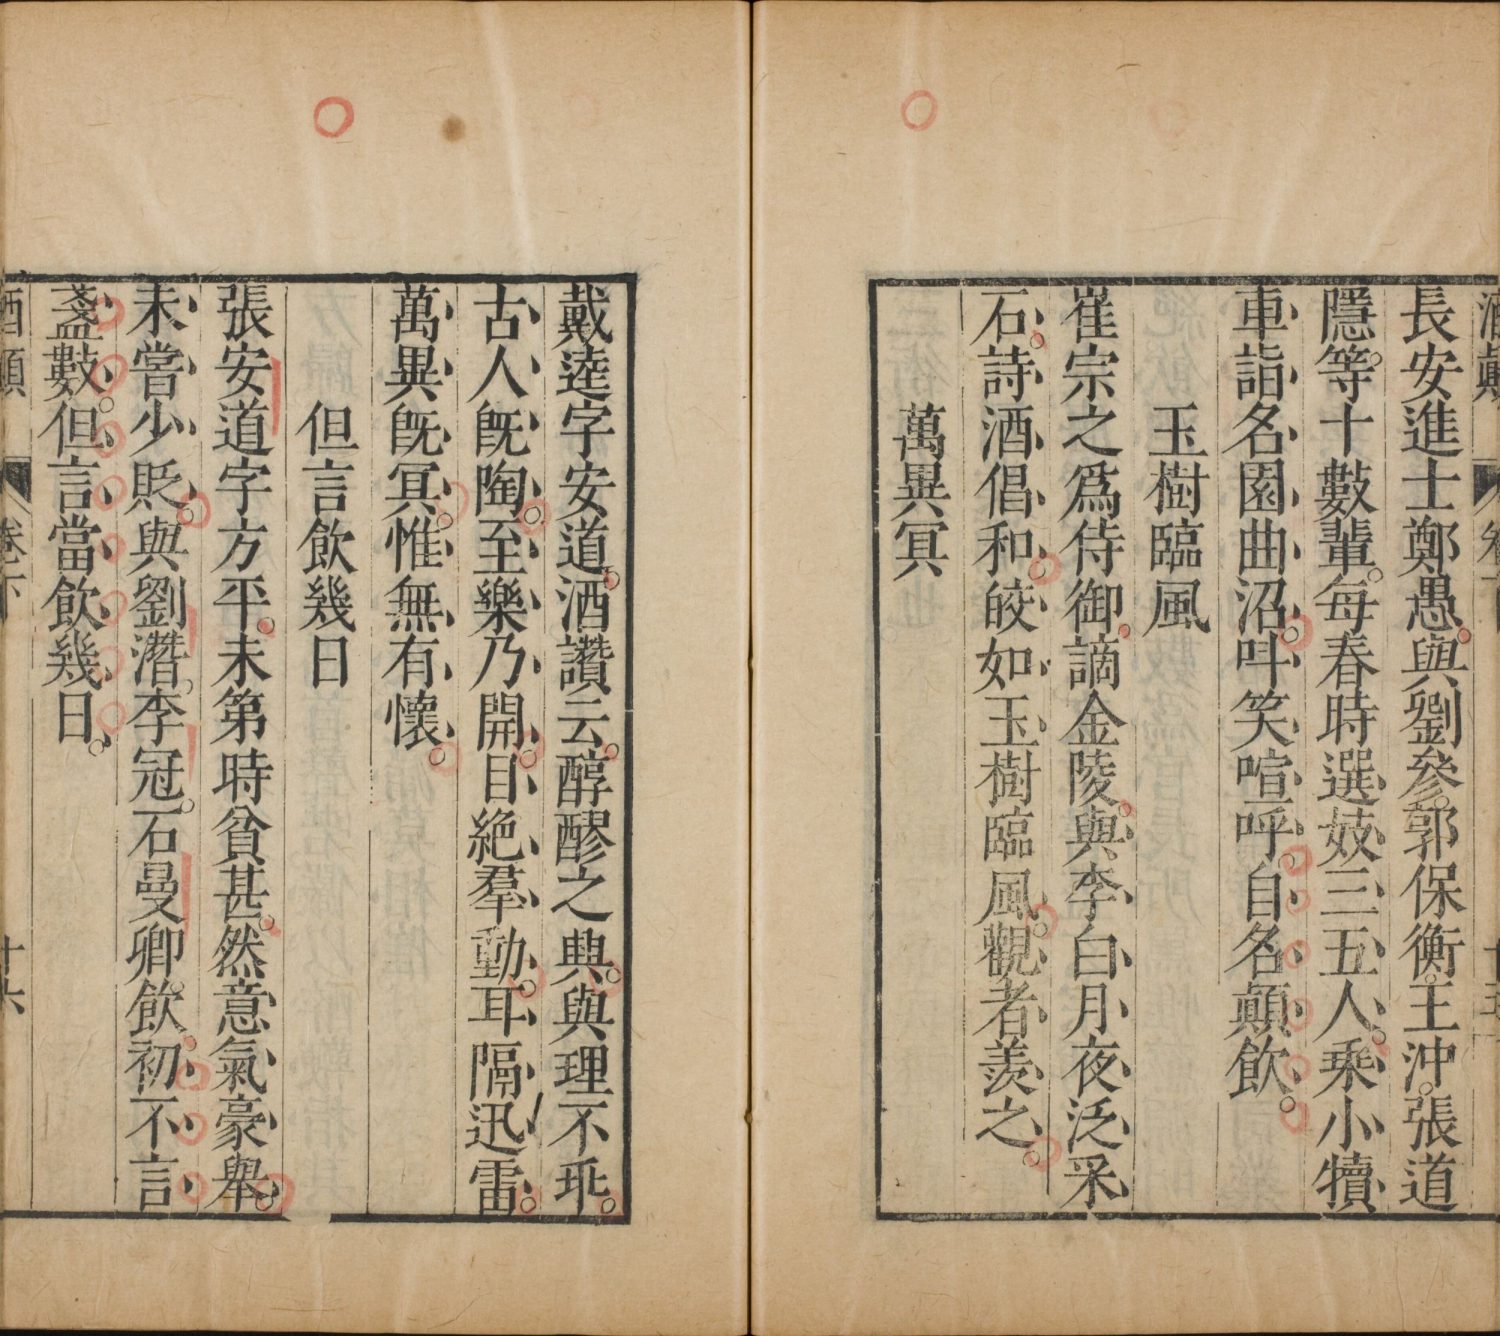 酒顛 卷下 十五
長安進士鄭愚。與劉參。郭保衡。王沖。張道
隱等。十數輩。每春時選妓三五人。乘小犢
車詣名園曲沼。叫笑喧呼。自名顛飲。
玉樹臨風
崔宗之爲侍御。謫金陵。與李白月夜泛采
石。詩酒倡和。皎如玉樹臨風。觀者羨之。
萬異冥
戴逵字安道。酒讚云。醇醪之典。與理不乖。
古人旣陶。至樂乃開。目絶羣動。耳隔迅雷。
萬異旣冥。惟無有懷。
但言飲幾日
張安道字方平。未第時貧甚。然意氣豪舉。
未嘗少貶。與劉潛。李冠。石曼卿。飲。初不言
盞數。但言當飲幾日。
酒顛 卷下 十六